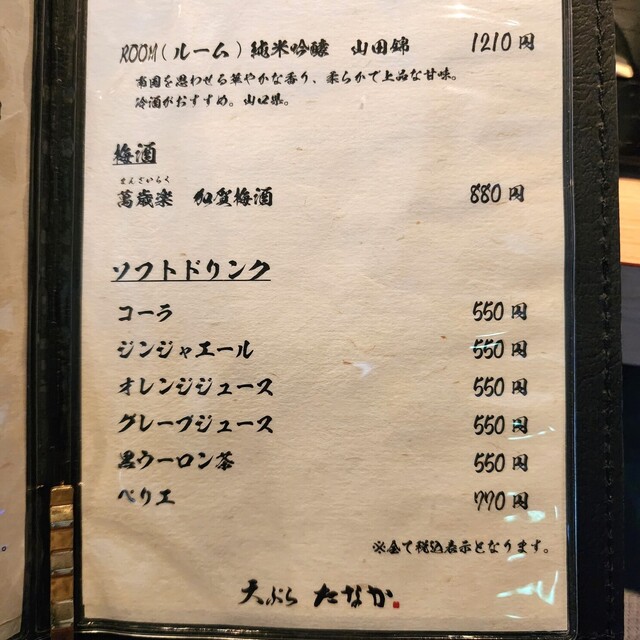 ROOM(ルーム)純米吟醸 山田錦 1210円
南国を思わせる華やかな香り、柔らかで上品な甘味。
冷酒がおすすめ。山口県。
梅酒
まんざいらく
萬歳楽 加賀梅酒 880円
ソフトドリンク
コーラ 550円
ジンジャエール 550円
オレンジジュース 550円
グレープジュース 550円
黒ウーロン茶 550円
ペリエ 770円
※全て税込表示となります。
天ぷら たなか